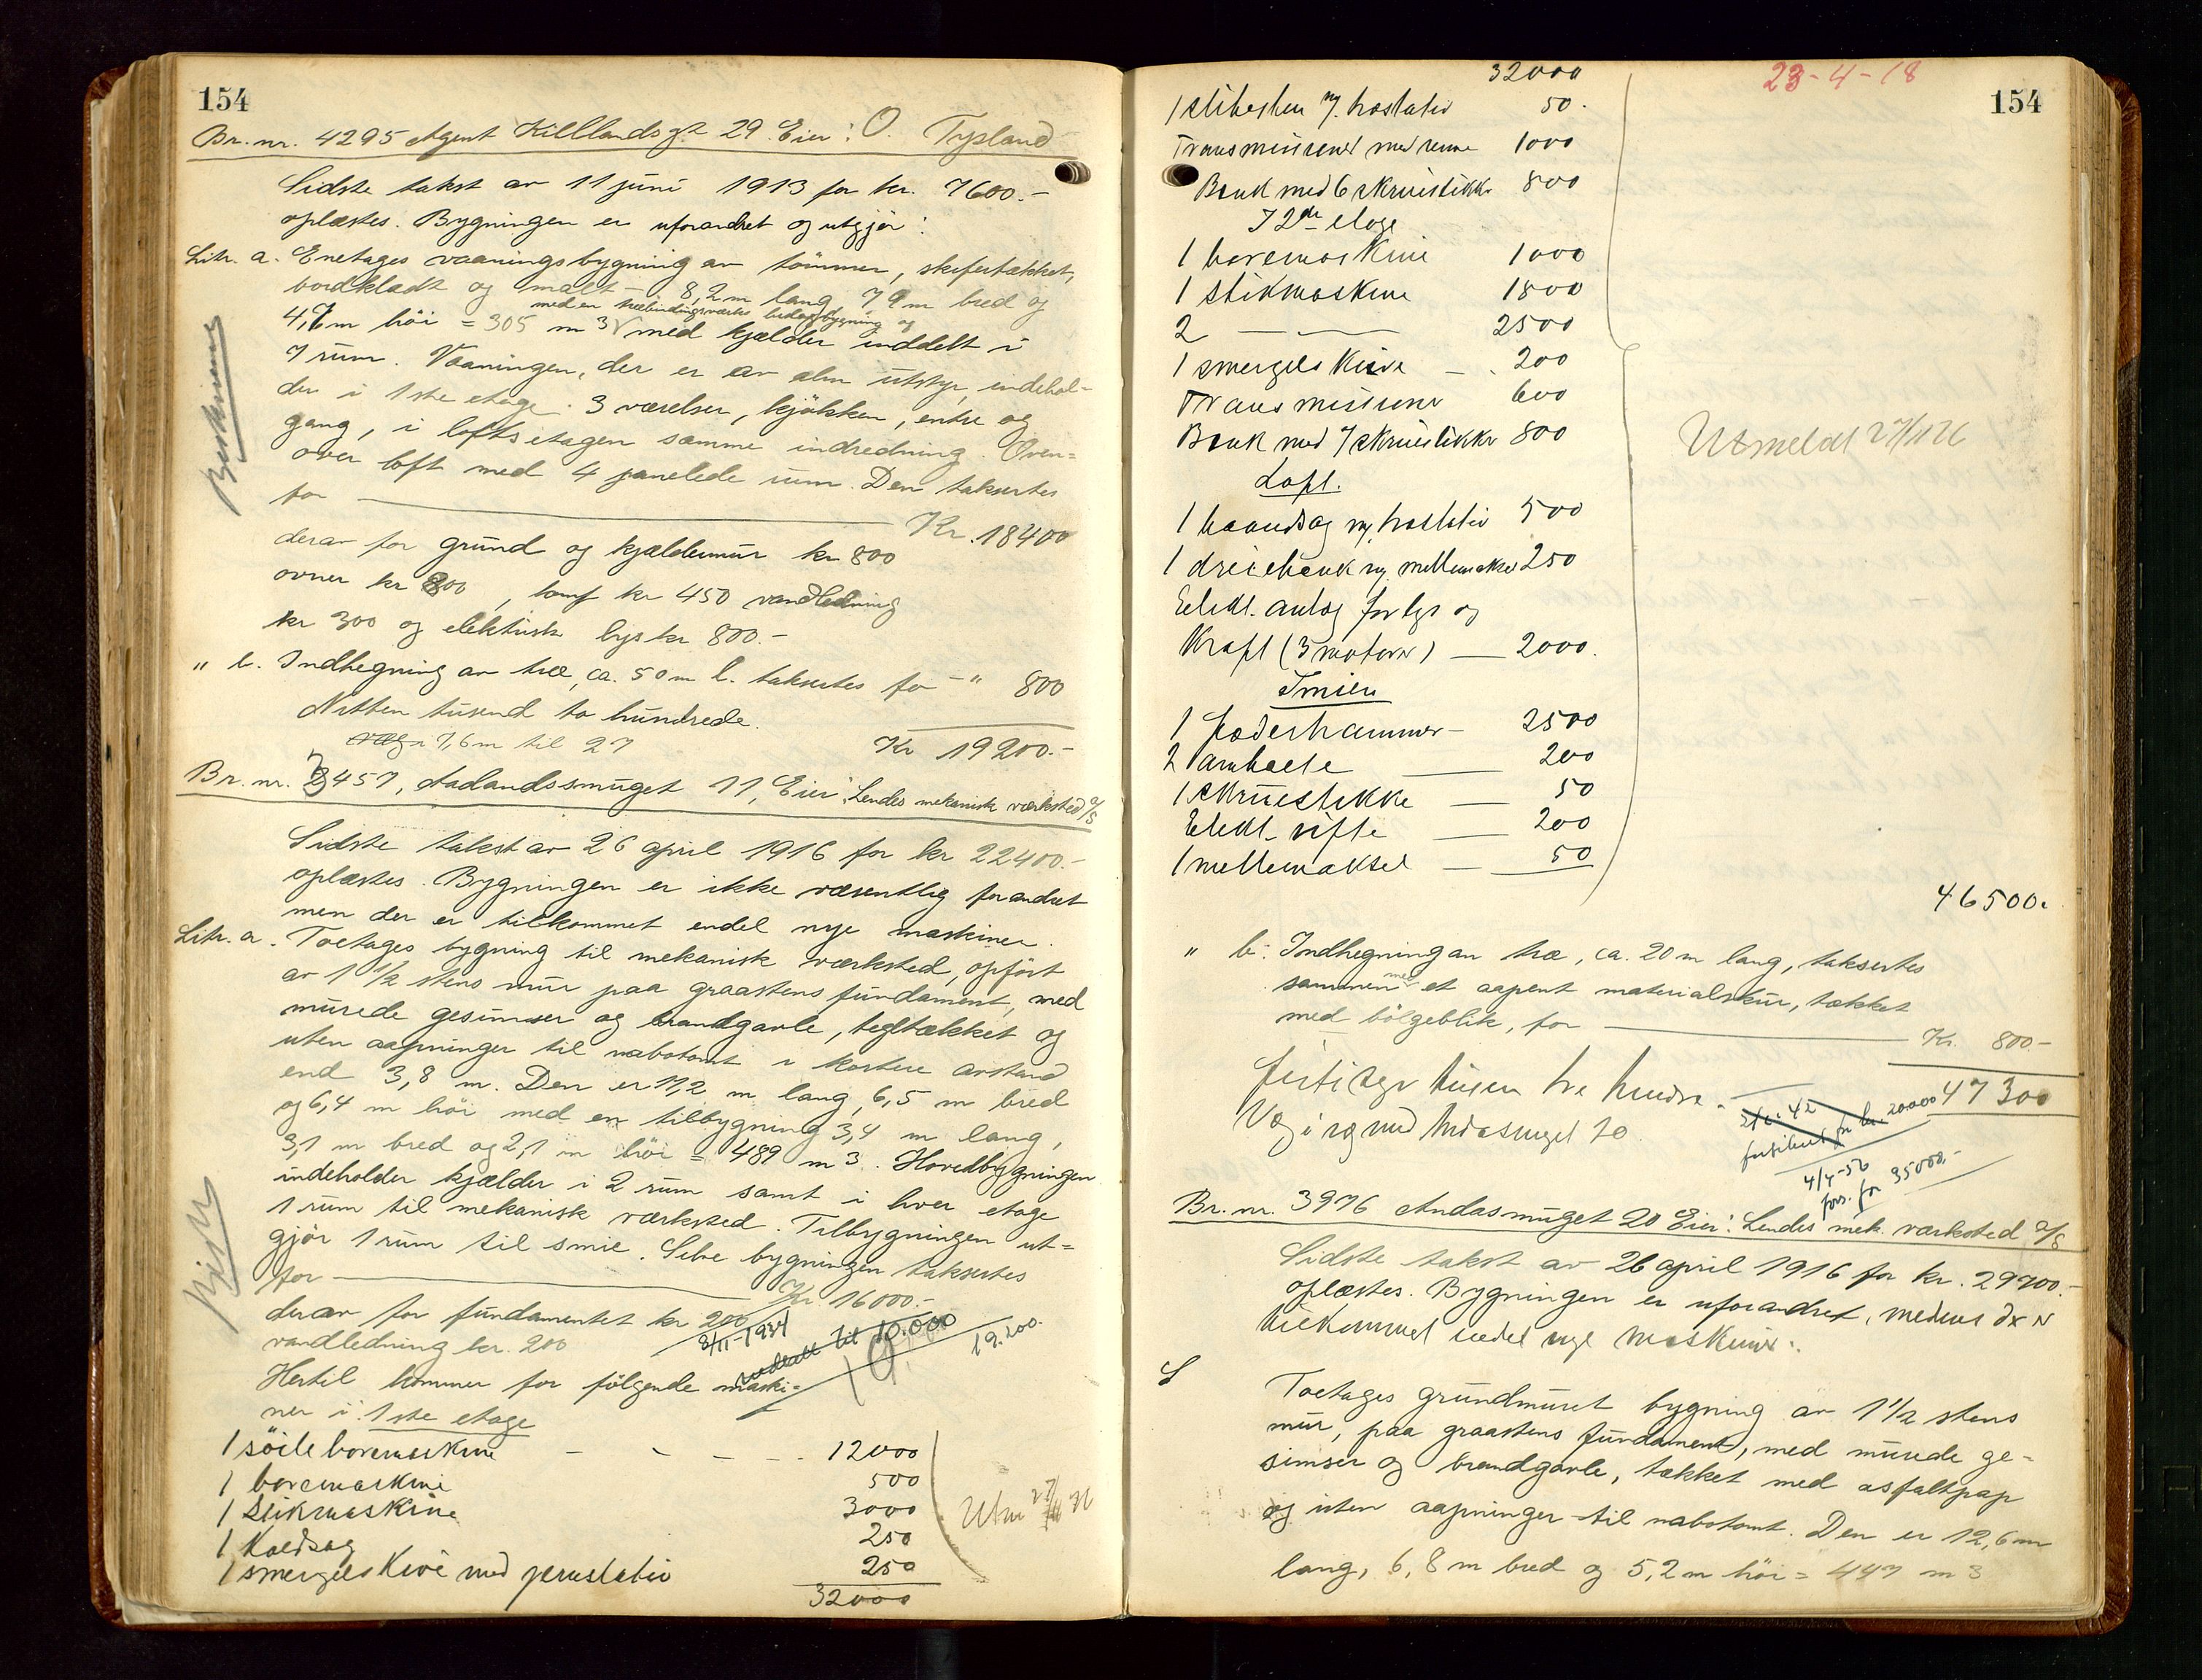 154
Br. nr. 4295 Agent Kiellandsgt 29. Eier: O. Tysland
Sidste takst av 11 juni 1913 for kr. 7600.-
oplæstes. Bygningen er uforandret og utgjør:
Litr. a. Enetages vaaningsbygning av tømmer, skifertækket,
bordklædt og malt - 8,2 m lang, 7,9 m bred og
med en træbindingsverks bygning og
4,7 m høi = 305 m3 med kjælder inddelt i
7 rum. Vaaningen, der er av alm utstyr, indehol-
der i 1ste etage: 3 værelser, kjøkken, entre og
gang, i loftsetagen samme indredning. Oven-
over loft med 4 panelede rum. Den taksertes
for Kr. 18400
derav for grund og kjældermur kr 800
ovner kr 800, komf kr 450 vandledning
kr 300 og elektrisk lys kr 800.-
" b. Indhegning av træ, ca. 50 m l. taksertes for -" 800
Nitten tusend to hundrede.
7,6 m til 27
Kr 19200.-
Br. nr. 3457, Aadlandssmuget 11, Eier: Lendes mekaniske værksted A/S
Sidste takst av 26 april 1916 for kr 22400.-
oplæstes. Bygningen er ikke væsentlig forandret
men der er tilkommet endel nye maskiner.
Litr. a. Toetages bygning til mekanisk værksted, opført
av 1 1/2 stens mur paa graastens fundament, med
murede gesimser og brandgavle, tegltækket og
uten aapninger til nabotomt i kortere avstand
end 3,8 m. Den er 11,2 m lang, 6,5 m bred
og 6,4 m høi med en tilbygning 3,4 m lang,
3,1 m bred og 2,1 m høi = 489 m3. Hovedbygningen
indeholder kjælder i 2 rum samt i hver etage
1 rum til mekanisk værksted. Tilbygningen ut-
gjør 1 rum til smie. Selve bygningen taksertes
for Kr 16000.-
derav for fundamentet kr 200
vandledning kr. 200
8/11-1934
nedsatt til 10.000
19.200.
Hertil kommer for følgende maski-
ner i 1ste etage
1 søileboremaskine 12000
1 boremaskine 500
1 stikmaskine 3000
1 Koldsag 250
1 smergelskive med jernstativ 250
32000
Utm 27/11 26
32000
23-4-18
154
1 slibesten m/. træstativ 50.
Transmissioner med remme 1000
Bænk med 6 skruestikker 800
I 2den etage
1 boremaskine 1000
1 stikmaskine 1800
2 — 2500
1 smergelskive - 200
Transmissioner 600
Bænk med 7 skruestikker 800
Utmeldt 27/11 26
Loft.
1 baandsag m/. træstativ 500
1 dreiebænk m/. mellemaksel 250
Elekt. anlæg for lys og
Kraft (3 motorer) — 2000.
I smien
1 fjæderhammer - 2500
2 ambolte — 200
1 skruestikke — 50
Elekt. vifte — 200
1 mellemaksel — 50
46500.
" b. Indhegning av træ, ca. 20 m lang, taksertes
sammen med et aapent materialskur, tækket
med bølgeblik, for — Kr. 800-
47300
Førtisyv tusen tre hundre.
20000
4/4-56
fors. for 35000.-
Br. nr. 3976 Andasmuget 20 Eier: Lendes mek. værksted A/S
Sidste takst av 26 april 1916 for kr. 29700.-
oplæstes. Bygningen er uforandret, medens der er
tilkommet endel nye maskiner.
Toetages grundmuret bygning av 1 1/2 stens
mur, paa graastens fundament, med murede ge-
simser og brandgavle, tækket med asfaltpap
og uten aapninger til nabotomt. Den er 12,6 m
lang, 6,8 m bred og 5,2 m høi = 447 m3